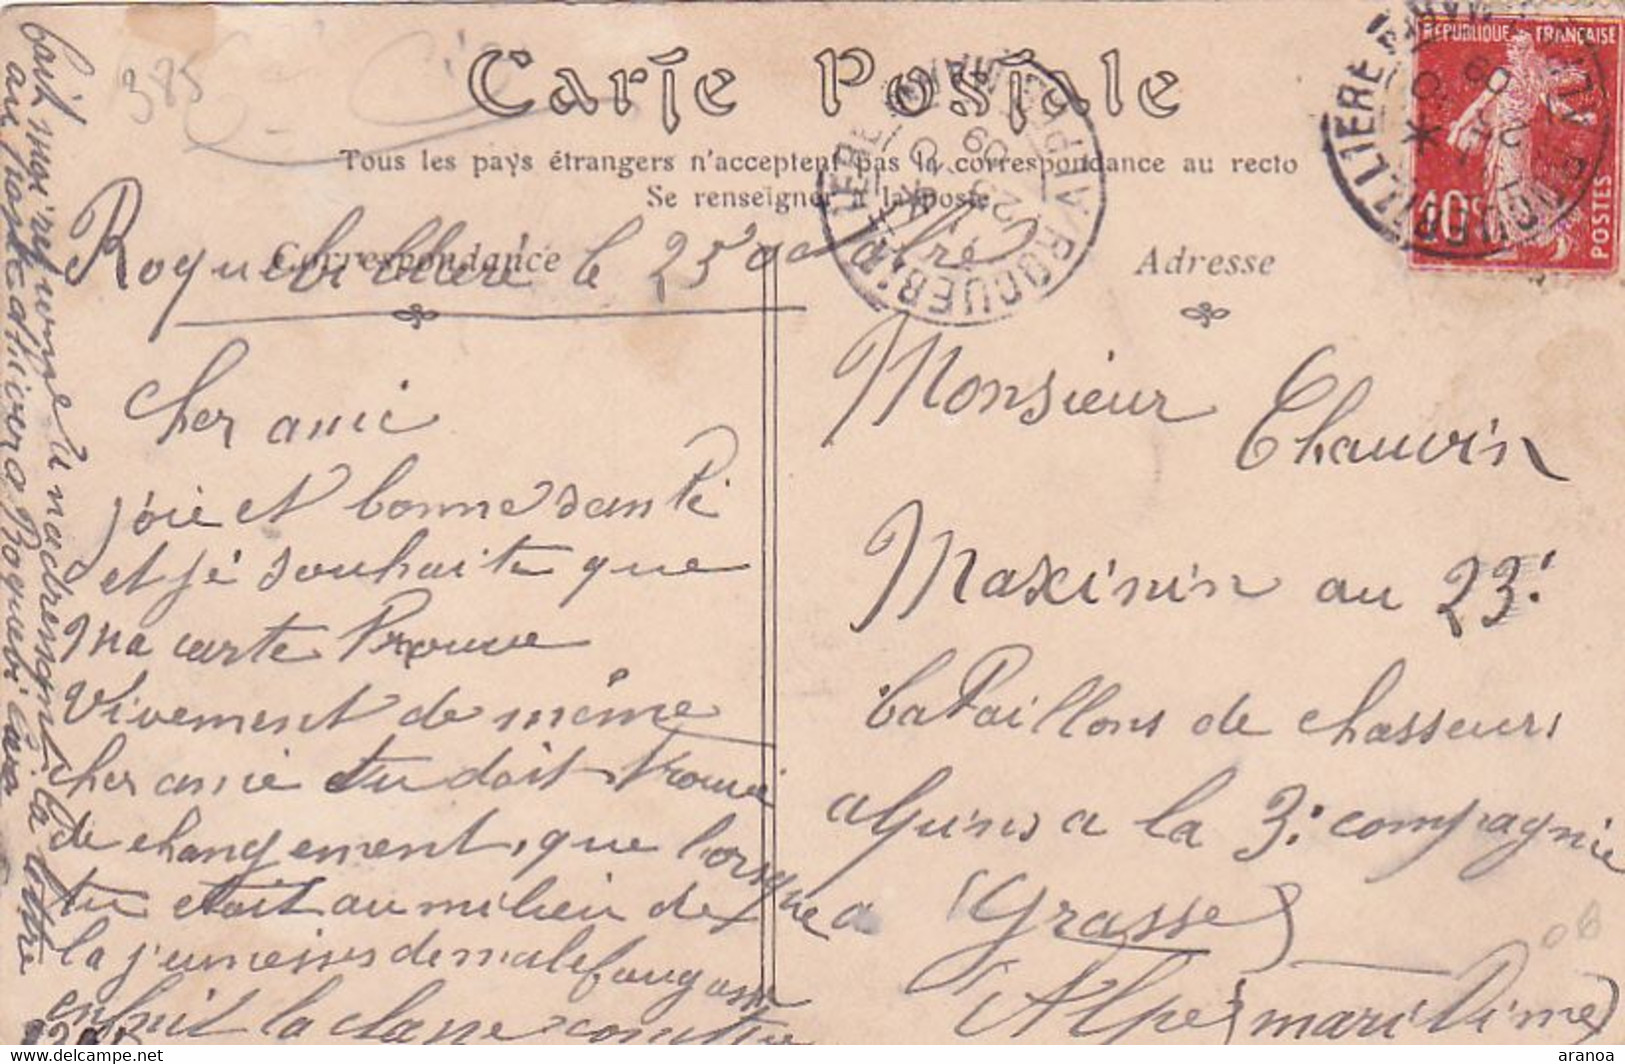 Carte Postale
Tous les pays étrangers n'acceptent pas la correspondance au recto
Se renseigner à la poste
Correspondance
Adresse
REPUBLIQUE FRANÇAISE
10c
POSTES
385
Roquebillière le 25 9
cher ami
joie et bonne santé
et je souhaite que
ma carte trouve
vivement de même
cher amie tu doit trouvé
de changement, que lorsque
tu etait au milieu de
la j'eunesses de malefougasse
la classe
Monsieur Chauvin
Maximin au 23e
bataillons de chasseurs
alpins a la 3e compagnie
(Grasse)
Alpes (maritime)
la lettre
aranoa